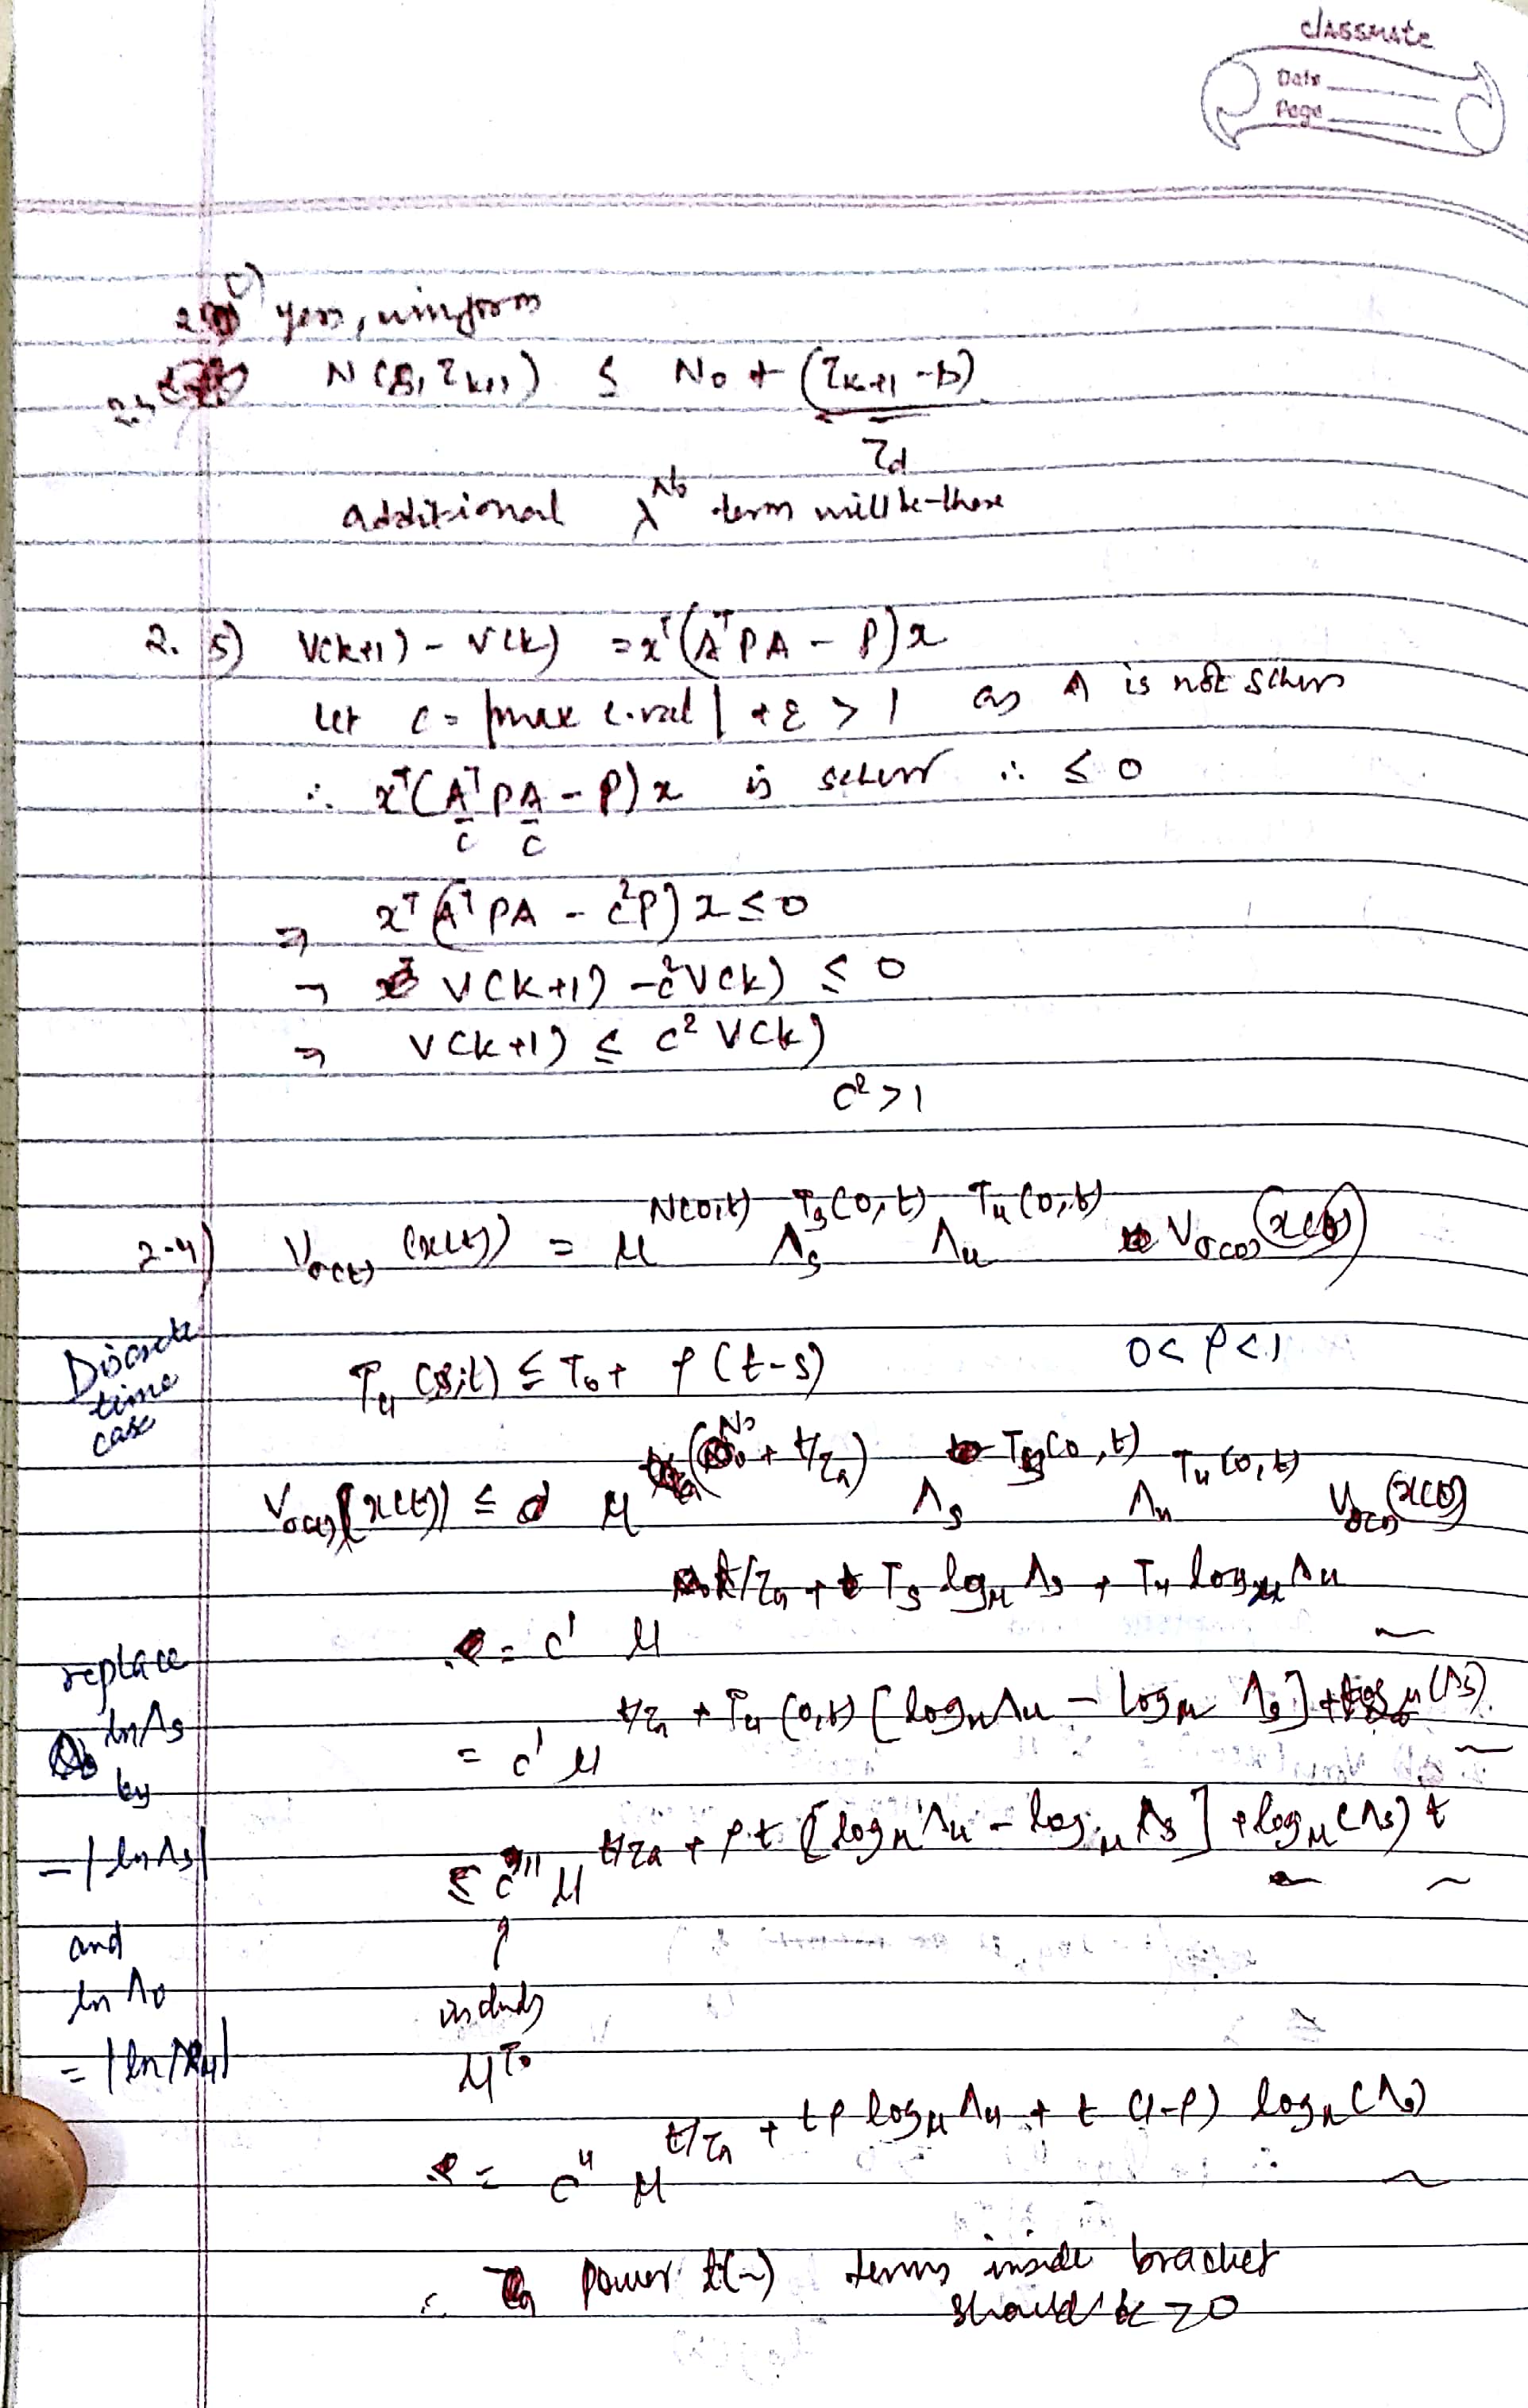 classmate
Date
Page
c)
yes, uniform
N(s, τk+1) ≤ No + (τk+1 - s)
τd
additional λ^No term will be there
2. 5) V(k+1) - V(k) = x^T(A^T P A - P)x
Let c = |max e.val| + ε > 1 as A is not schur
∴ x^T(A^T/c P A/c - P)x is schur ∴ ≤ 0
⇒ x^T(A^T PA - c²P)x ≤ 0
⇒ V(k+1) - c²V(k) ≤ 0
⇒ V(k+1) ≤ c² V(k)
c² > 1
2.4) Vσ(t) (x(t)) = μ^N(0,t) Λs^Ts(0,t) Λu^Tu(0,t) Vσ(0)(x(0))
Discrete
time
case
Tu(s,t) ≤ To + ρ(t-s) 0 < ρ < 1
Vσ(t)(x(t)) ≤ μ^(No + t/τa) Λs^Ts(0,t) Λu^Tu(0,t) Vσ(0)(x(0))
= c' μ^t/τa + Ts logμ Λs + Tu logμ Λu
replace
lnΛs
by
-|lnΛs|
and
ln Λu
= |lnΛu|
= c' μ^t/τa + Tu(0,t) [logμ Λu - logμ Λs] + t logμ(Λs)
≤ c'' μ^t/τa + ρt [logμ Λu - logμ Λs] + logμ(Λs) t
includes
μ^To
= c'' μ^t/τa + tρ logμ Λu + t(1-ρ) logμ(Λs)
∴ power t(~) terms inside bracket
should be > 0